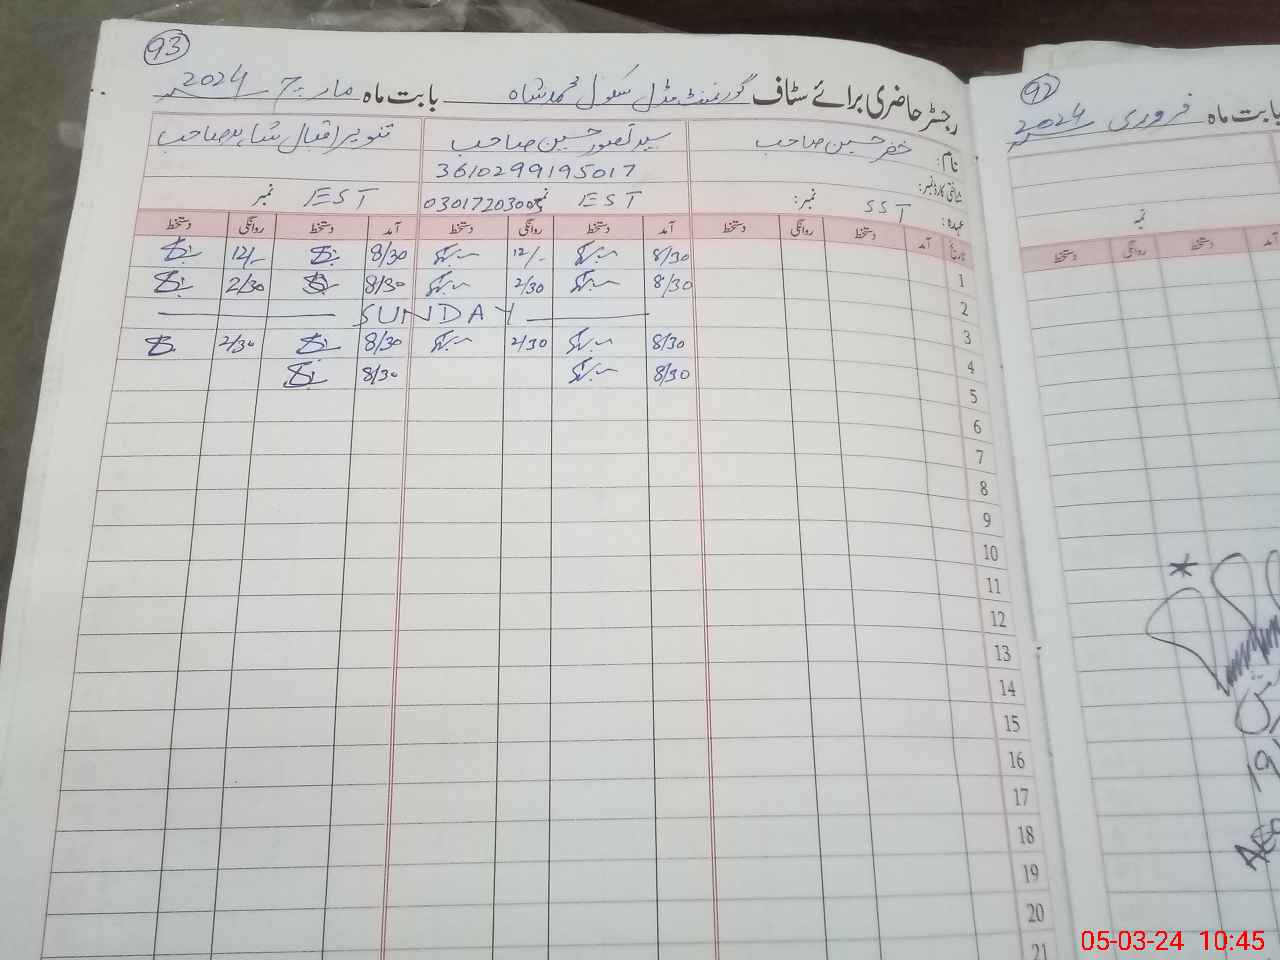 93
رجسٹر حاضری برائے سٹاف گورنمنٹ مڈل سکول محمد شاہ بابت ماہ مارچ 2024
نام: خضر حسین صاحب سید تصور حسین صاحب تنویر اقبال شاہد صاحب
شناختی کارڈ نمبر: 3610299195017
عہدہ: SST نمبر: EST نمبر 03017203003 EST نمبر
تاریخ آمد دستخط روانگی دستخط آمد دستخط روانگی دستخط آمد دستخط روانگی دستخط
1 8/30 12/- 8/30 12/-
2 8/30 2/30 8/30 2/30
3 SUNDAY
4 8/30 2/30 8/30 2/30
5 8/30 8/30
6
7
8
9
10
11
12
13
14
15
16
17
18
19
20
21
92
بابت ماہ فروری 2024
نمبر
آمد دستخط روانگی دستخط
*
19/
05-03-24 10:45